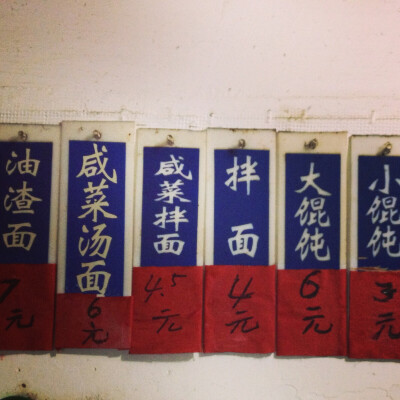 油渣面
7元
咸菜汤面
6元
咸菜拌面
4.5元
拌面
4元
大馄饨
6元
小馄饨
元